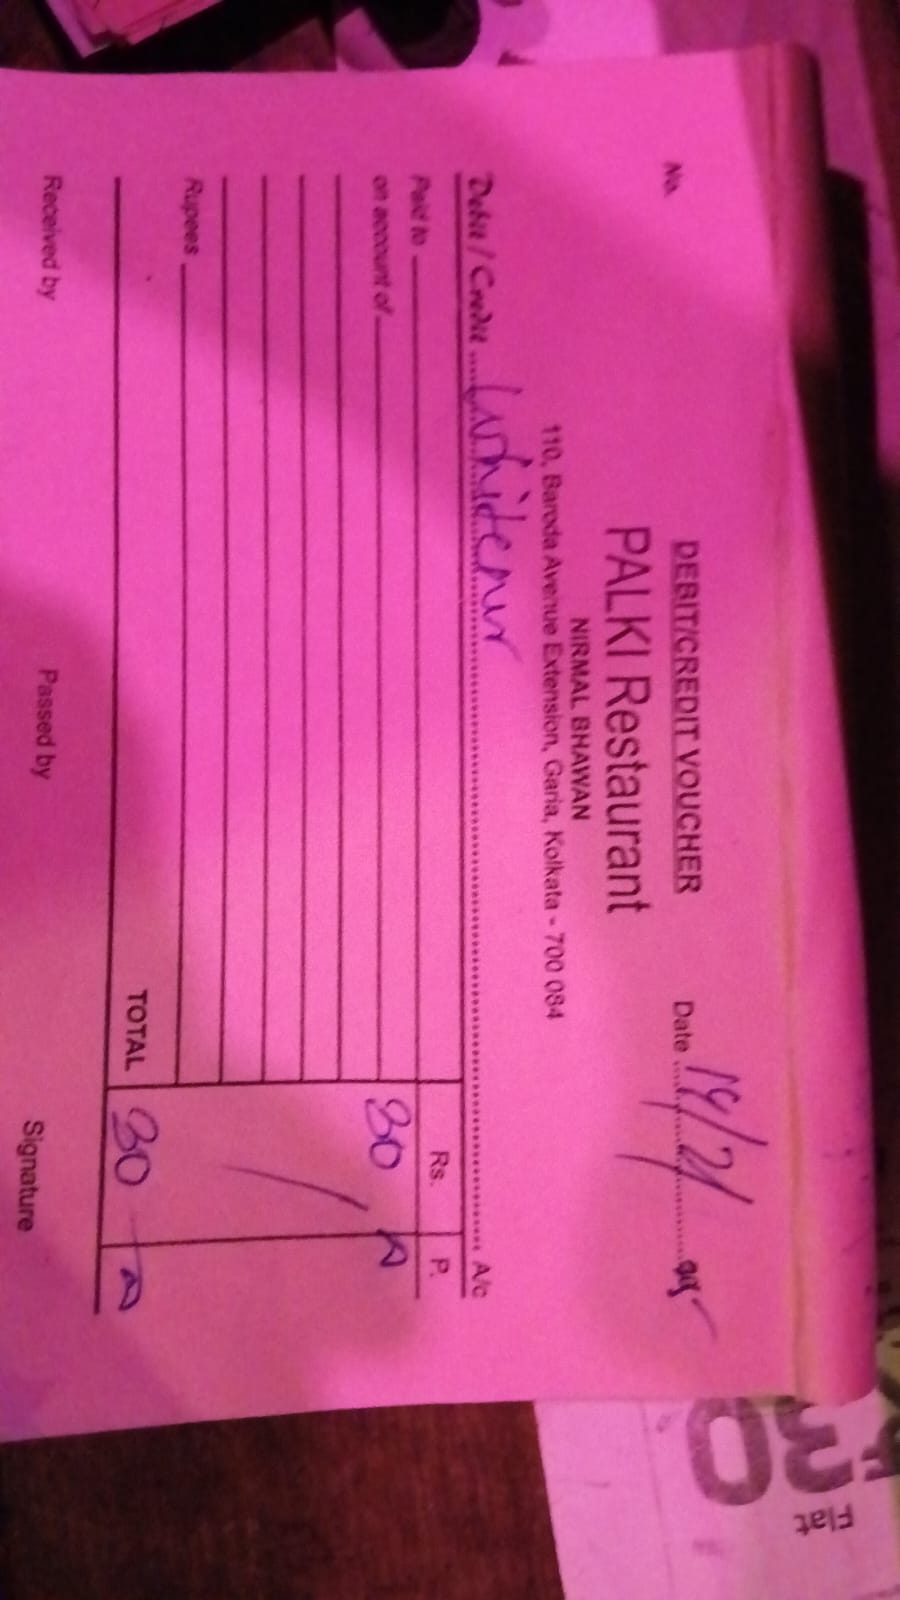 No.
DEBIT/CREDIT VOUCHER
Date
PALKI Restaurant
NIRMAL BHAWAN
110, Baroda Avenue Extension, Garia, Kolkata - 700 084
Debit / Credit whitener A/c
Rs. P.
Paid to
on account of 80
Rupees
TOTAL 80
Received by Passed by Signature
30
Flat